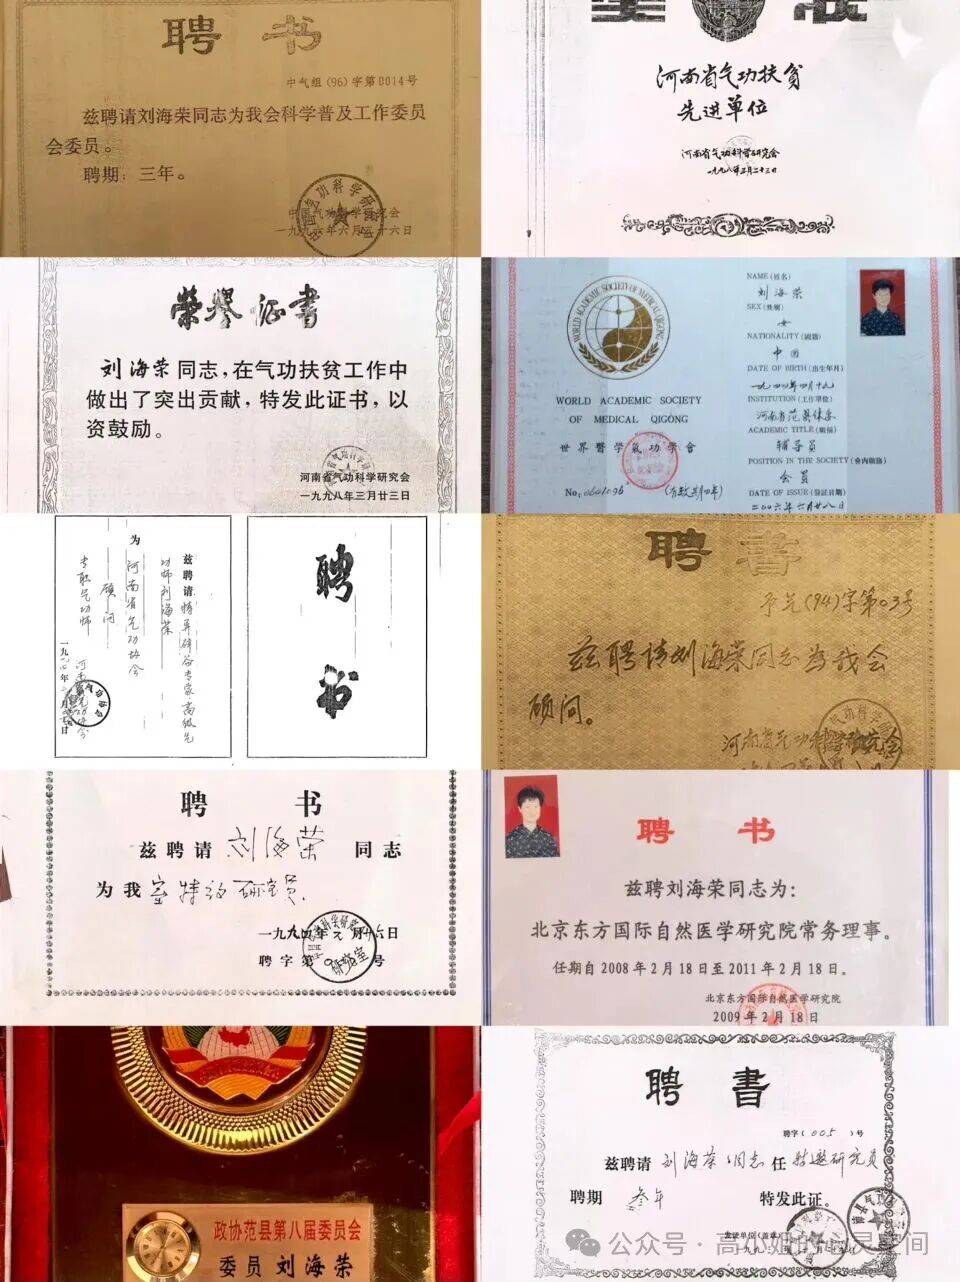 聘书
中气组(96)字第0014号
兹聘请刘海荣同志为我会科学普及工作委员
会委员。
聘期：三年。
中国气功科学研究会
一九九六年六月二十六日
河南省气功扶贫
先进单位
河南省气功科学研究会
一九九八年三月二十三日
荣誉证书
刘海荣同志，在气功扶贫工作中
做出了突出贡献，特发此证书，以
资鼓励。
河南省气功科学研究会
一九九八年三月廿三日
WORLD ACADEMIC SOCIETY OF MEDICAL QIGONG
WORLD ACADEMIC SOCIETY
OF MEDICAL QIGONG
世界醫學氣功學會
(有效期四年)
NAME (姓名)
刘海荣
SEX (性别)
女
NATIONALITY (國籍)
中国
DATE OF BIRTH (出生年月)
INSTITUTION (工作單位)
河南省范县体委
ACADEMIC TITLE (職稱)
辅导员
POSITION IN THE SOCIETY (會内職務)
会员
DATE OF ISSUE (發証日期)
二00六年六月廿八日
聘书
兹聘请特异辟谷专家、高级气
功师刘海荣
为河南省气功协会
顾问
专职气功师
聘書
予气(94)字第03号
兹聘请刘海荣同志为我会
顾问。
河南省气功科学研究会
聘书
兹聘请刘海荣同志
为我室特约研究员
聘字第 号
聘书
兹聘刘海荣同志为：
北京东方国际自然医学研究院常务理事。
任期自2008年2月18日至2011年2月18日。
北京东方国际自然医学研究院
2009年2月18日
政协范县第八届委员会
委员 刘海荣
聘書
聘字(005)号
兹聘请刘海荣同志任特邀研究员
聘期 叁年 特发此证。
发证单位(盖章)
公众号·高